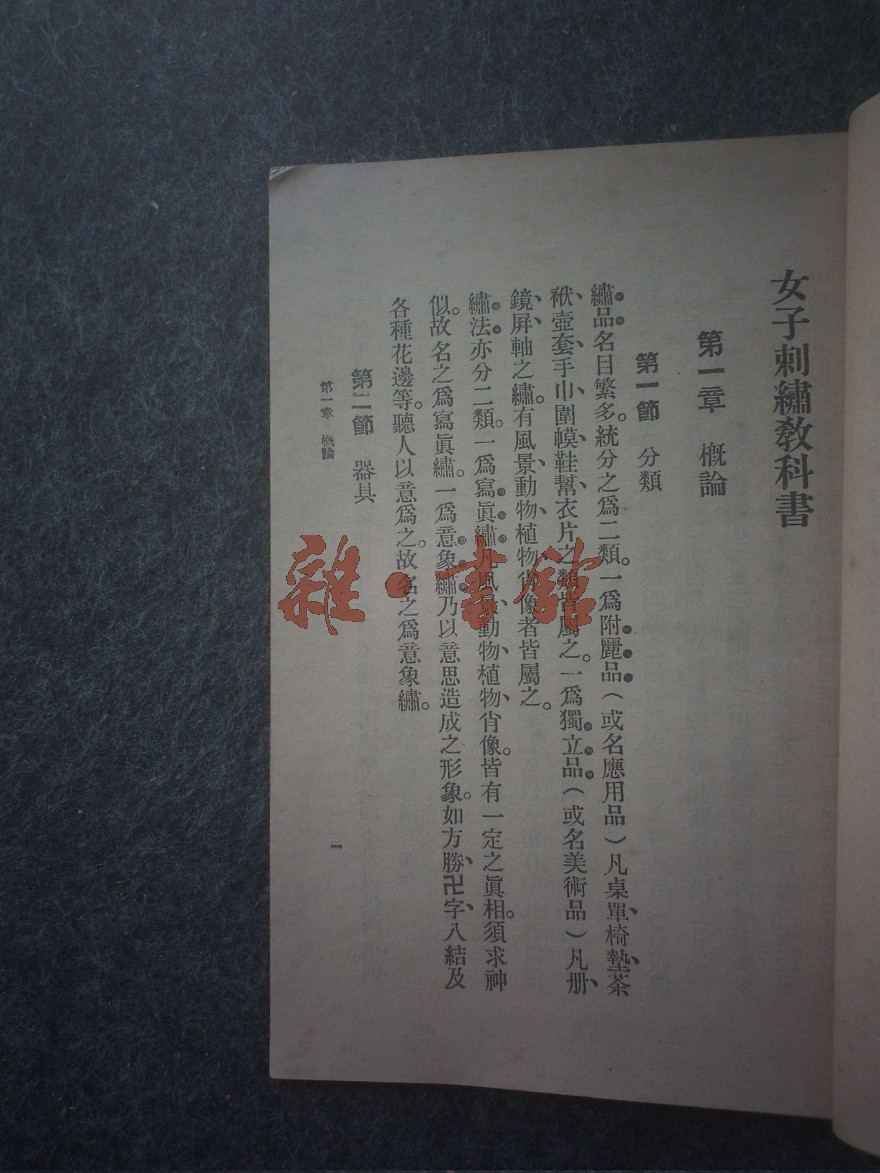 女子刺繡教科書
第一章　概論
第一節　分類
繡品名目繁多。統分之爲二類。一爲附麗品（或名應用品）凡桌單、椅墊、茶
袱、壺套、手巾、圍幙、鞋幫、衣片之類皆屬之。一爲獨立品（或名美術品）凡册、
鏡、屏、軸之繡。有風景、動物、植物、肖像者皆屬之。
繡法亦分二類。一爲寫眞繡。凡風景、動物、植物、肖像。皆有一定之眞相。須求神
似。故名之爲寫眞繡。一爲意象繡。乃以意思造成之形象。如方勝、卍字、八結及
各種花邊等。聽人以意爲之。故名之爲意象繡。
第二節　器具
第一章　概論
一
雜·書館